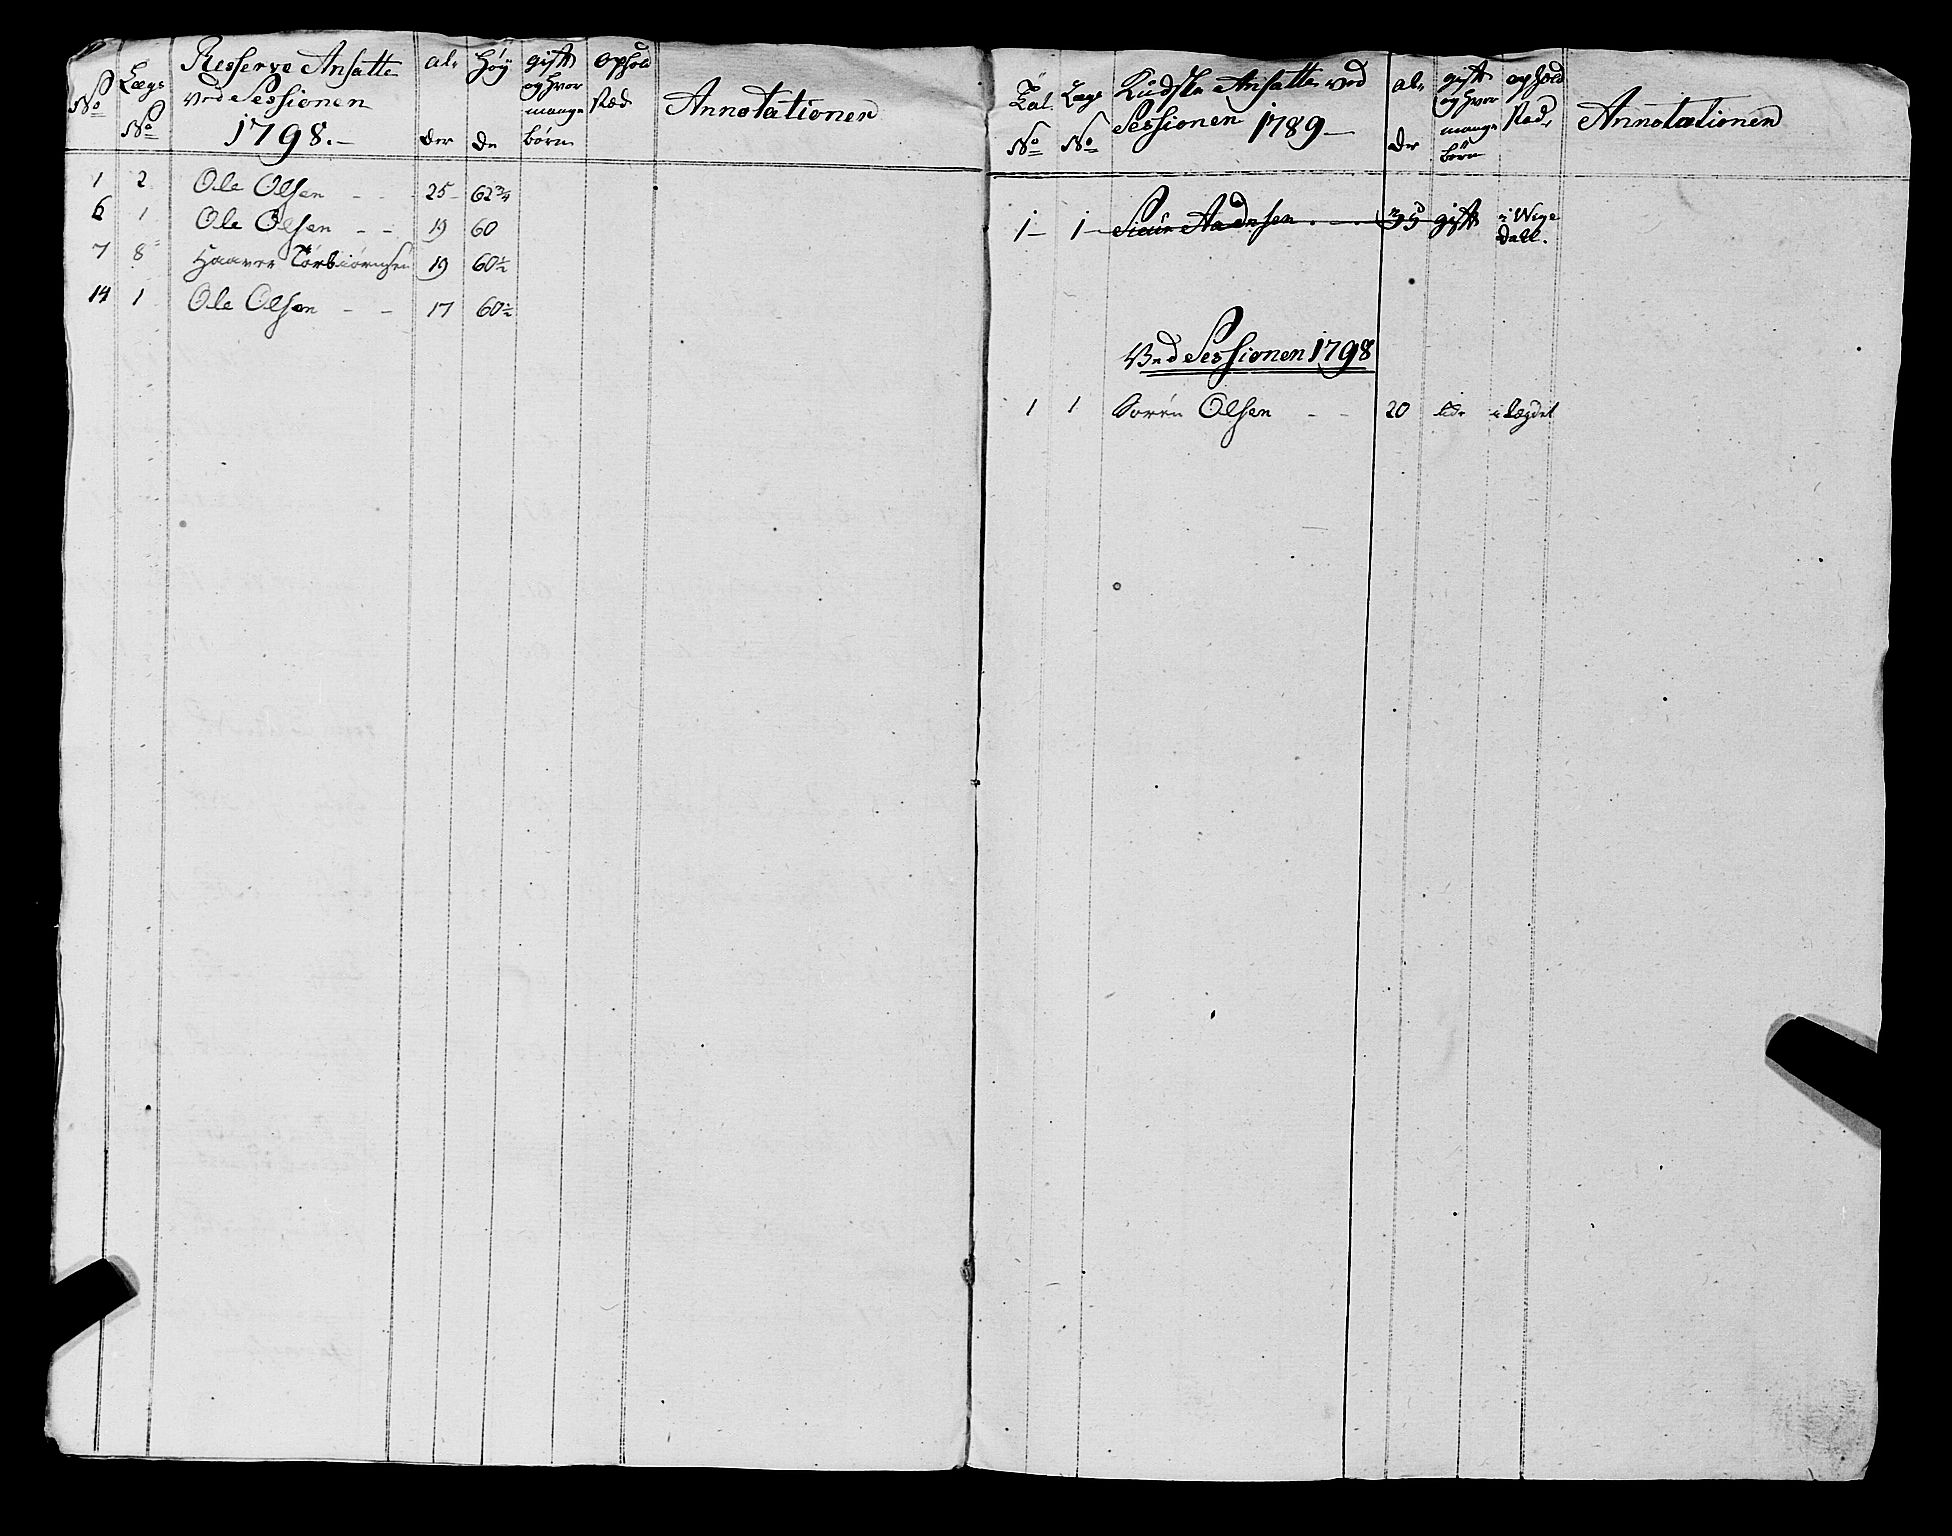 No | Lægs No | Resserve Ansatte ved Sessionen 1798.– | al- der | Høy de | gift og hvor mange børn | ophold stæd | Annotationer
1 2 Ole Olsen - - 25 - 62 3/4
6 1 Ole Olsen - - 19 60
7 8 Haaver Torbiørnsen 19 60 1/2
14 1 Ole Olsen - - 17 60 1/2
Tal No | Lægs No | Kudske Ansatte ved Sessionen 1789 – | al- der | gift og hvor mange børn | ophold stæd, | Annotationer
1 – 1 – Siur Aadnsen . - . 35 gift i Wigedall.
Ved Sessionen 1798
1 1 Søren Olsen - - 20 i Lægdet